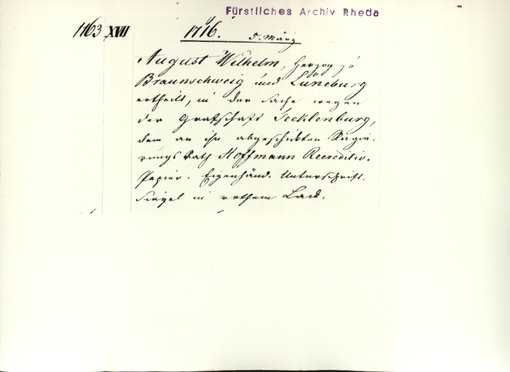 Fürstliches Archiv Rheda
1163 XVII 1716. 5. März
August Wilhelm, Herzog zu
Braunschweig und Lüneburg
ertheilt, in der Sache wegen
der Grafschaft Tecklenburg,
dem an ihn abgeschickten Regie-
rungs Rath Hoffmann Recreditiv.
Papier. Eigenhänd. Unterschrift.
Siegel in rothem Lack.